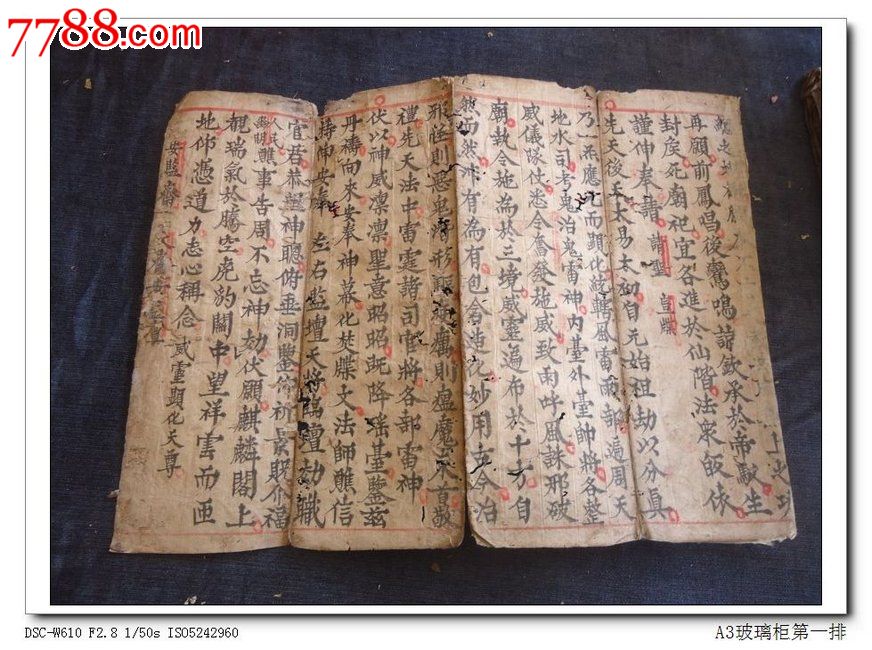 7788.com
再顧前鳳唱後鸞鳴請欽承於帝獻生
封疾死廟祀宜各進於仙階法衆皈依
謹伸奉請 請聖 宣牒
先天後天太易太初自元始祖劫以分真
乃一 應 而顯化統轄風雷雨部遍周天
地水司考鬼治鬼雷神内臺外臺帥將各整
威儀隊仗悉令奮發施威致雨呼風誅邪破
廟執令施為於三境威靈遍布於十方自
然而然 有為有包含造化妙用古今治
邪怪則惡鬼 形 則瘟魔 首敬
禮先天法中雷霆諸司官將各部雷神
伏以神威凜凜聖意昭昭既降瑤臺鑒茲
丹禱向來安奉神幕化焚牒文法師醮信
持伸安奉 左右監壇天將臨壇功職
官君恭望神聰俯垂洞鑒 祈 賜介福
人民
醮事告周不忘神功伏願麒麟閣上
覩瑞氣於騰空虎豹關中望祥雲而匝
地仰憑道力志心稱念 威靈顯化天尊
安監齋
DSC-W610 F2.8 1/50s ISO5242960
A3玻璃柜第一排